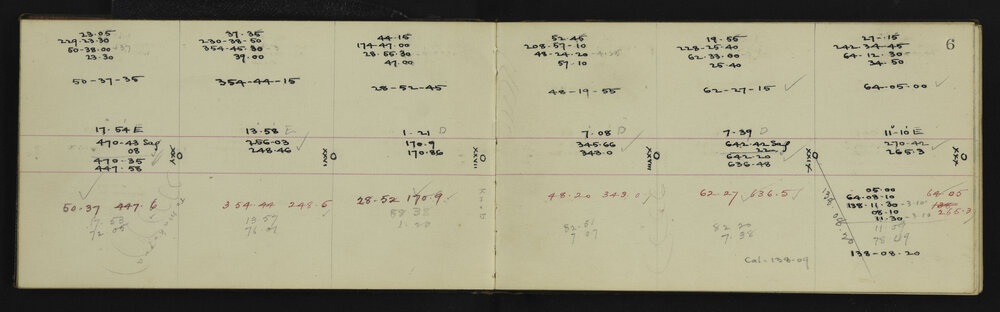 23.05
229.23.30
50-38.00 +37
23.30
50-37-35
17.54 E
470-43 Sag
08
470.35
447.58
XXV
50.37 447.6
17.53
72.05
37.35
230-38-50
354-45 30
39.00
354-44-15
13.58 E
256-03
248.46
XXVI
354-44 248.6
13.57
76.01
44.15
174-47.00
28-55.30
47.00
28-52-45
1.21 D
170.9
170.86
XXVII
28-52 170.9
88 38
1.20
52.45
208-57-10
48-24.20
57-10
48-19-55
7.08 D
345.66
343.0
XXVIII
48.20 343.0
82.51
7.07
19.55
228-25-40
62.33.00
25.40
62-27-15
7.39 D
642-42 Sag
22
642-20
636-48
XXIX
62.27 636.5
82 20
7.38
Cal-138-09
6
27-.15
242.34-45
64-12.30
34.50
64-05.00
11-10 E
270-42
265.3
XXX
138 08.20
05.00
64-08.10
138-11.30 -3.10
08-10
11.30 -3.10
64-05
265.3
11.09
78 49
138-08.20